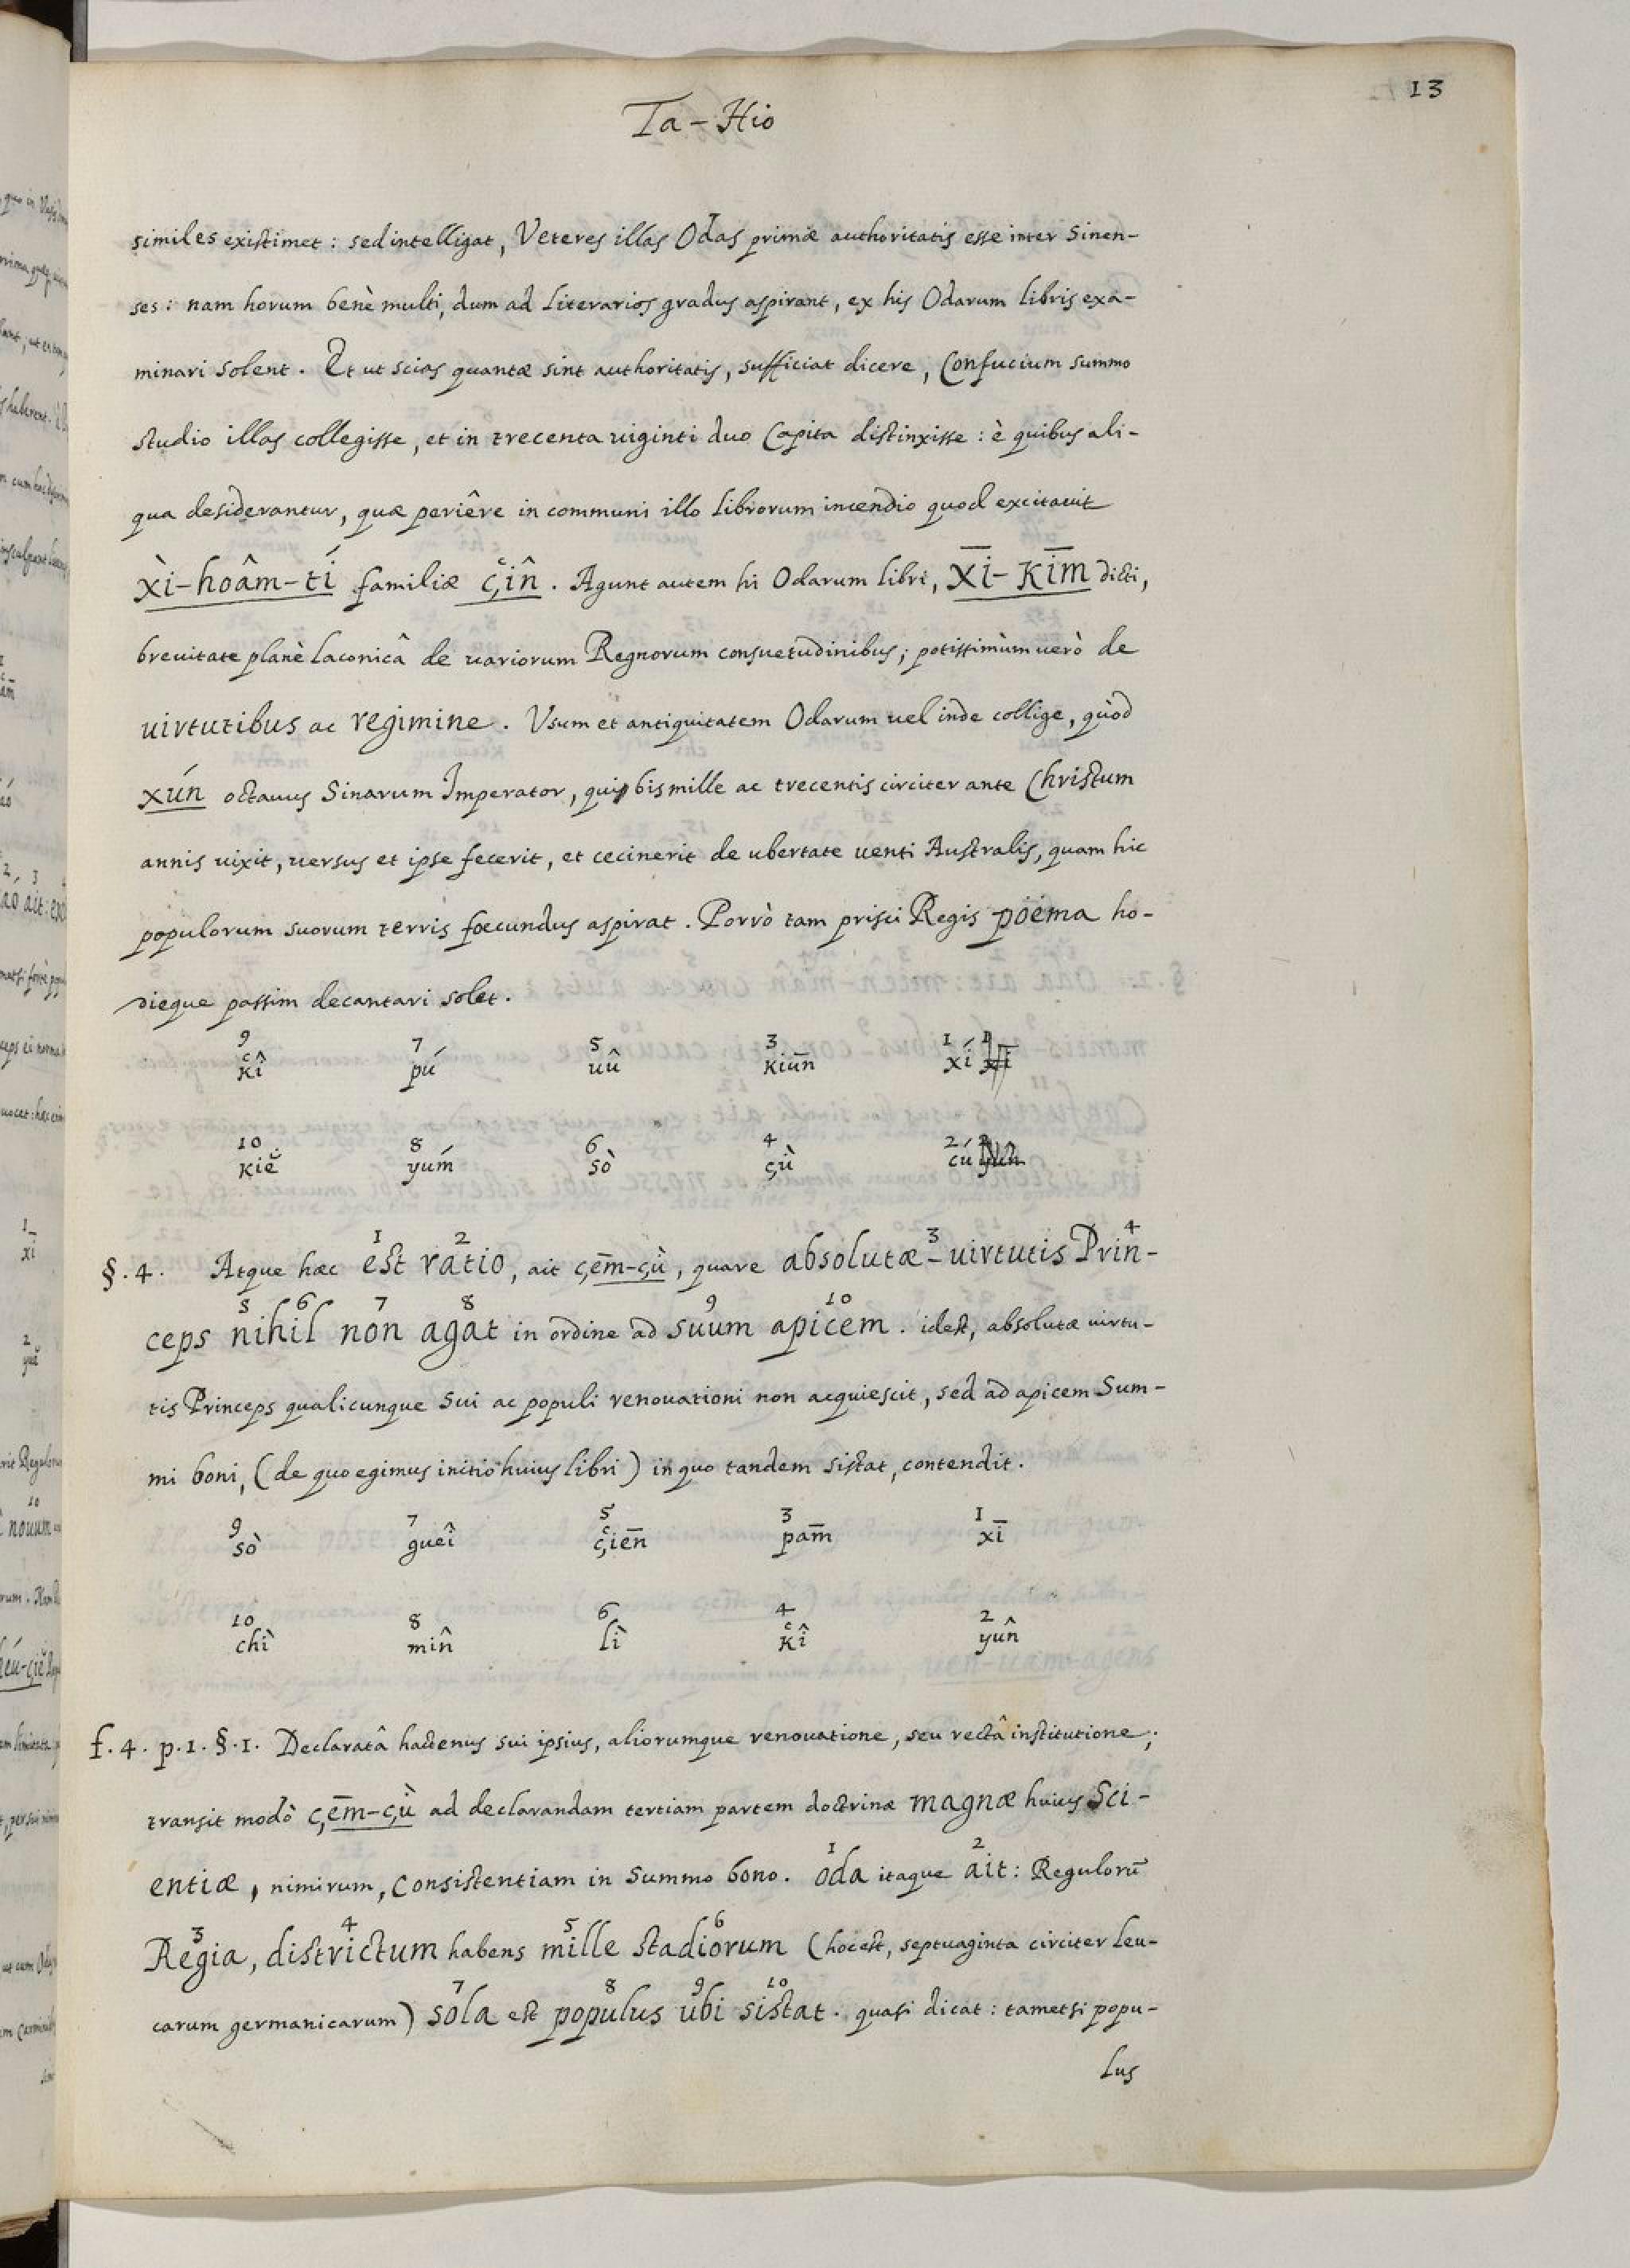 13
Ta-Hio
similes existimet: sed intelligat, Veteres illas Odas primæ authoritatis esse inter Sinen-
ses: nam horum benè multi, dum ad Literarios gradus aspirant, ex his Odarum libris exa-
minari solent. Et ut scias quantæ sint authoritatis, sufficiat dicere, Confucium summo
studio illas collegisse, et in trecenta uiginti duo Capita distinxisse: è quibus ali-
qua desiderantur, quæ periêre in communi illo librorum incendio quod excitauit
xì-hoâm-tí familiæ çʿîn. Agunt autem hi Odarum libri, xī-Kīm dicti,
breuitate planè Laconicâ de uariorum Regnorum consuetudinibus; potissimùm uerò de
uirtutibus ac regimine. Vsum et antiquitatem Odarum uel inde collige, quòd
xún octauus Sinarum Imperator, qui bis mille ac trecentis circiter ante Christum
annis uixit, uersus et ipse fecerit, et cecinerit de ubertate uenti Australis, quam hic
populorum suorum terris foecundus aspirat. Porrò tam prisci Regis poëma ho-
dieque passim decantari solet.
9 7 5 3 1 1
kʿî pú uû kiūn xí xī
10 8 6 4 2 2
kiĕ yúm sò çù cú yûn
1 2 3 4
§.4. Atque hæc est ratio, ait çēm-çù, quare absolutæ-uirtutis Prin-
5 6 7 8 9 10
ceps nihil non agat in ordine ad suum apicem. idest, absolutæ uirtu-
tis Princeps qualicunque sui ac populi renouationi non acquiescit, sed ad apicem Sum-
mi boni, (de quo egimus initio huius libri) in quo tandem sistat, contendit.
9 7 5 3 1
sò gueî çʿiēn pām xī
10 8 6 4 2
chì mîn lì kʿî yûn
f.4. p.1. §.1. Declaratâ hactenus sui ipsius, aliorumque renouatione, seu rectâ institutione;
transit modò çēm-çù ad declarandam tertiam partem doctrinæ magnæ huius Sci-
1 2
entiæ, nimirum, Consistentiam in Summo bono. Oda itaque ait: Regulorū
3 4 5 6
Regia, districtum habens mille stadiorum (hoc est, septuaginta circiter leu-
7 8 9 10
carum germanicarum) sola est populus ubi sistat. quasi dicat: tametsi popu-
lus